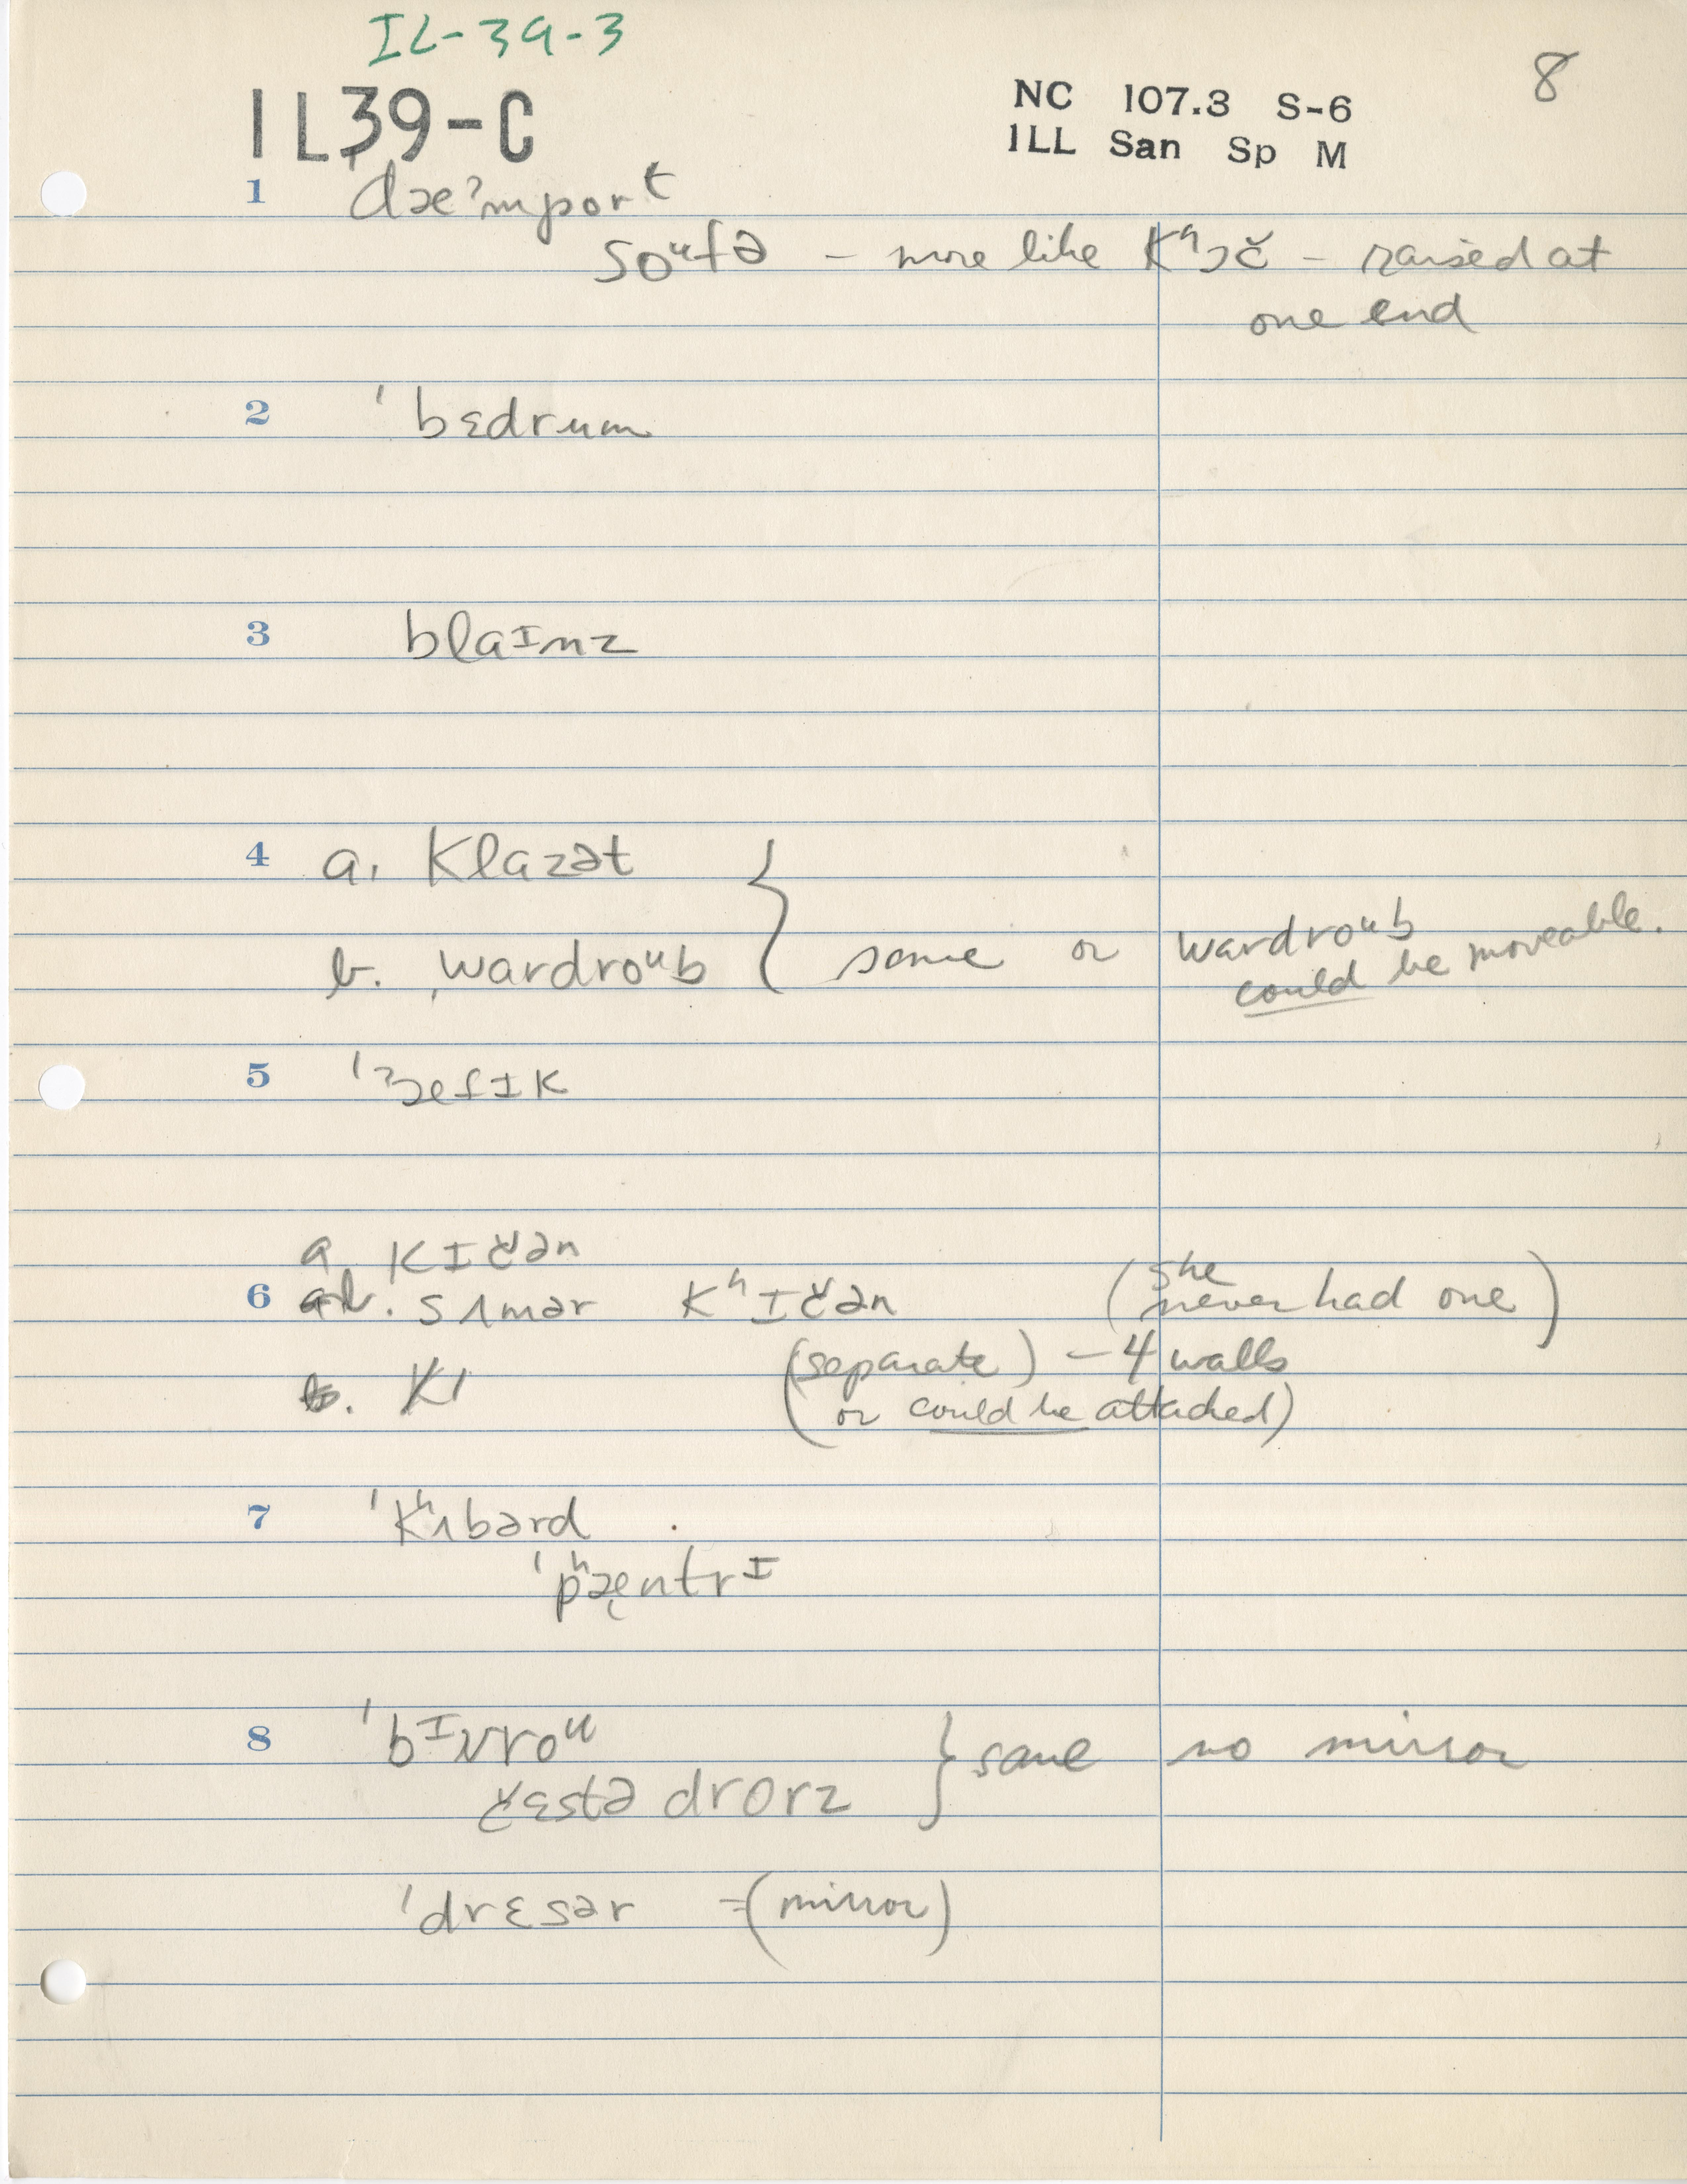 IL-39-3
8
IL39-C
NC 107.3 S-6
ILL San Sp M
1 ˈdæˀmport
soᵘfə – more like kʰɔč – raised at
one end
2 ˈbɛdrum
3 blaɪnz
4 a. klazət
b. wardroᵘb } same or wardroᵘb
could be moveable.
5
a. kɪčən
6 b. sʌmər kʰɪčən (she never had one)
(separate) – 4 walls
b. kɪ
(or could be attached)
7 ˈkʰʌbərd
ˈpʰæntrɪ
8 ˈbɪuroᵘ
čɛstə drorz } same no mirror
ˈdrɛsər =(mirror)